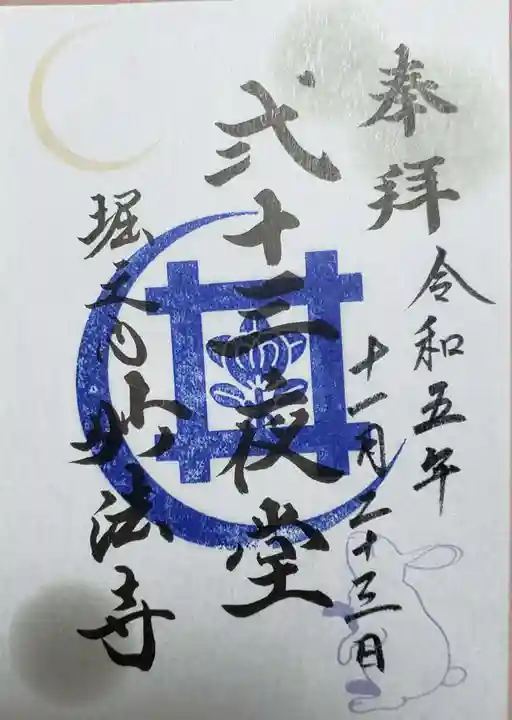 奉拝
令和五年
十一月二十三日
弐十三夜堂
堀之内妙法寺